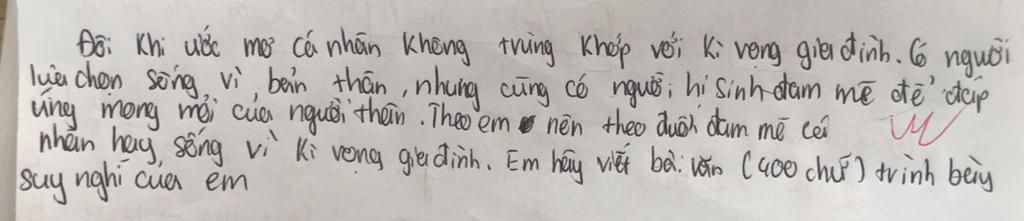 Đôi khi ước mơ cá nhân không trùng khớp với kì vọng gia đình. Có người
lựa chọn sống vì bản thân, nhưng cũng có người hi sinh đam mê để đáp
ứng mong mỏi của người thân. Theo em nên theo đuổi đam mê cá
nhân hay sống vì kì vọng gia đình. Em hãy viết bài văn (400 chữ) trình bày
suy nghĩ của em